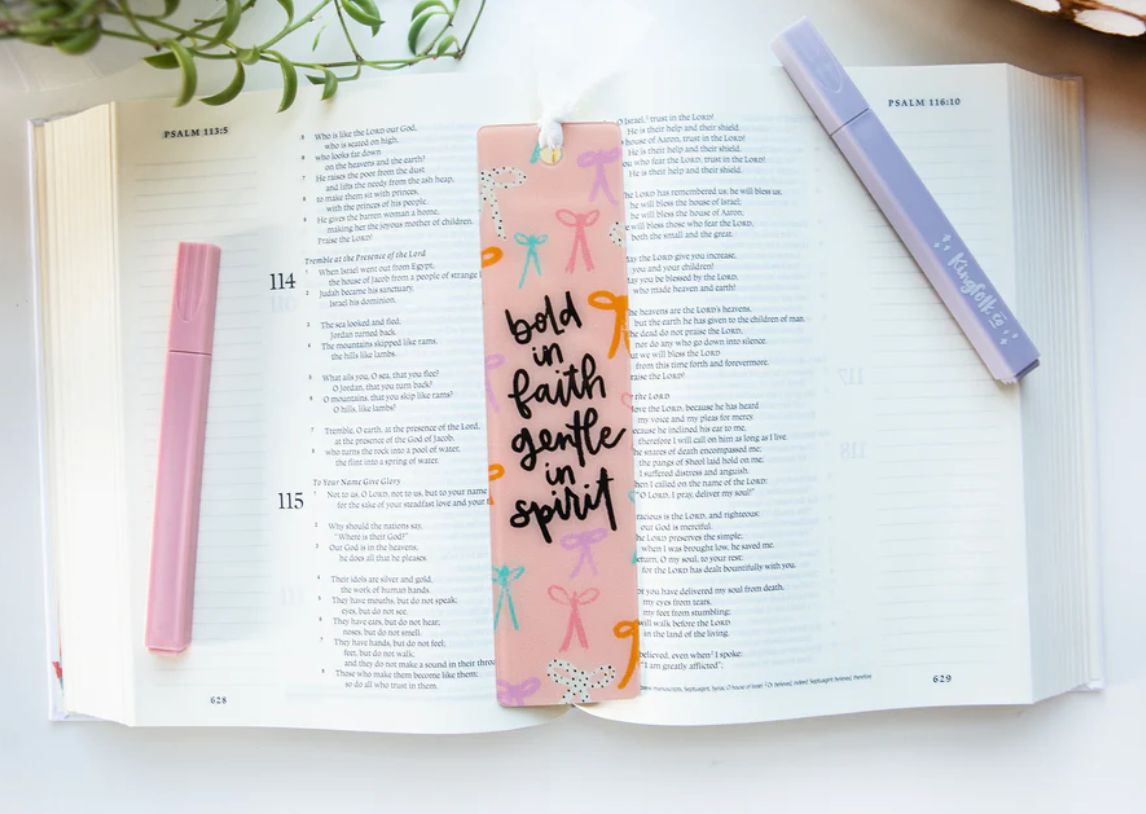 PSALM 113:5
5 Who is like the LORD our God,
who is seated on high,
6 who looks far down
on the heavens and the earth?
7 He raises the poor from the dust
and lifts the needy from the ash heap,
8 to make them sit with princes,
with the princes of his people.
9 He gives the barren woman a home,
making her the joyous mother of children.
Praise the LORD!
Tremble at the Presence of the Lord
114
1 When Israel went out from Egypt,
the house of Jacob from a people of strange
2 Judah became his sanctuary,
Israel his dominion.
3 The sea looked and fled;
Jordan turned back.
4 The mountains skipped like rams,
the hills like lambs.
5 What ails you, O sea, that you flee?
O Jordan, that you turn back?
6 O mountains, that you skip like rams?
O hills, like lambs?
7 Tremble, O earth, at the presence of the Lord,
at the presence of the God of Jacob,
8 who turns the rock into a pool of water,
the flint into a spring of water.
To Your Name Give Glory
115
1 Not to us, O LORD, not to us, but to your name
for the sake of your steadfast love and your
2 Why should the nations say,
"Where is their God?"
3 Our God is in the heavens;
he does all that he pleases.
4 Their idols are silver and gold,
the work of human hands.
5 They have mouths, but do not speak;
eyes, but do not see.
6 They have ears, but do not hear;
noses, but do not smell.
7 They have hands, but do not feel;
feet, but do not walk;
and they do not make a sound in their
8 Those who make them become like them;
so do all who trust in them.
628
bold
in
faith
gentle
in
spirit
PSALM 116:10
O Israel, trust in the LORD!
He is their help and their shield.
house of Aaron, trust in the LORD!
He is their help and their shield.
who fear the LORD, trust in the LORD!
He is their help and their shield.
LORD has remembered us; he will bless us;
he will bless the house of Israel;
he will bless the house of Aaron;
will bless those who fear the LORD,
both the small and the great.
the LORD give you increase,
you and your children!
you be blessed by the LORD,
who made heaven and earth!
heavens are the LORD's heavens,
but the earth he has given to the children of man.
dead do not praise the LORD,
nor do any who go down into silence.
we will bless the LORD
from this time forth and forevermore.
the LORD!
the LORD
love the LORD, because he has heard
my voice and my pleas for mercy.
because he inclined his ear to me,
therefore I will call on him as long as I live.
snares of death encompassed me;
the pangs of Sheol laid hold on me;
I suffered distress and anguish.
I called on the name of the LORD:
"O LORD, I pray, deliver my soul!"
is the LORD, and righteous;
our God is merciful.
LORD preserves the simple;
when I was brought low, he saved me.
O my soul, to your rest;
for the LORD has dealt bountifully with you.
you have delivered my soul from death,
my eyes from tears,
my feet from stumbling;
will walk before the LORD
in the land of the living.
believed, even when I spoke:
"I am greatly afflicted";
629
Kingfolk co